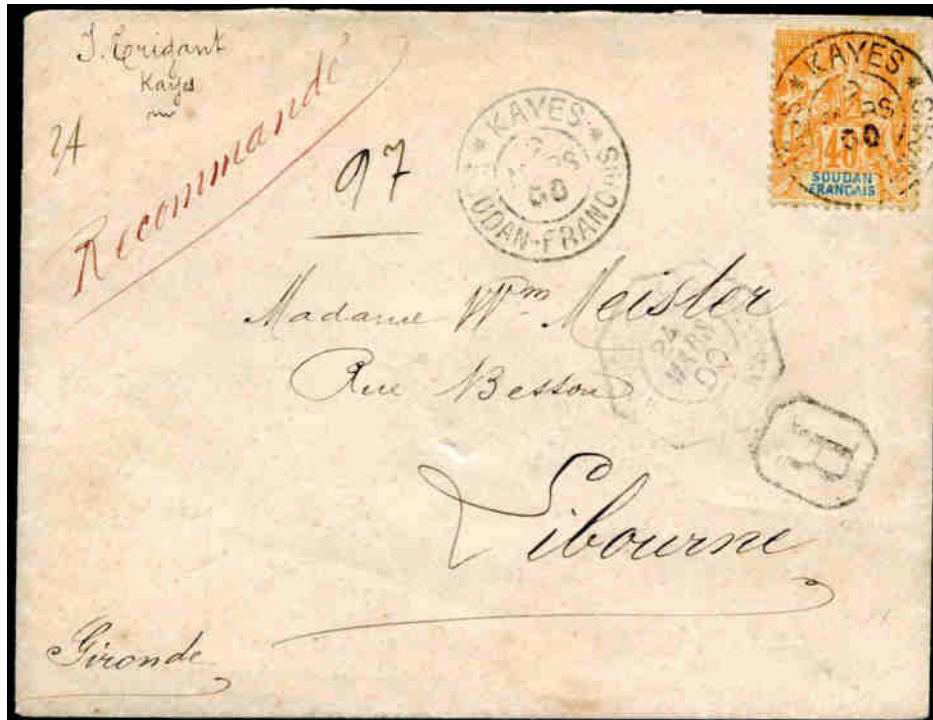 J. Trigant
Kayes
24
Recommandé
97
* KAYES *
2
MARS
00
SOUDAN-FRANCAIS
* KAYES *
2
MARS
00
40
SOUDAN
FRANCAIS
Madame Wm Meister
24
MARS
00
Rue Besson
R
Libourne
Gironde